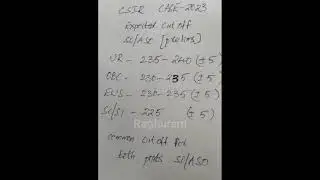 CSIR CASE-2023
Expected cut off
SO/ASO [prelims]
UR - 235-240 (±5)
OBC - 230-235 (±5)
EWS - 230-235 (±5)
SC/ST - 225 (±5)
Common cut off for
both posts SO/ASO